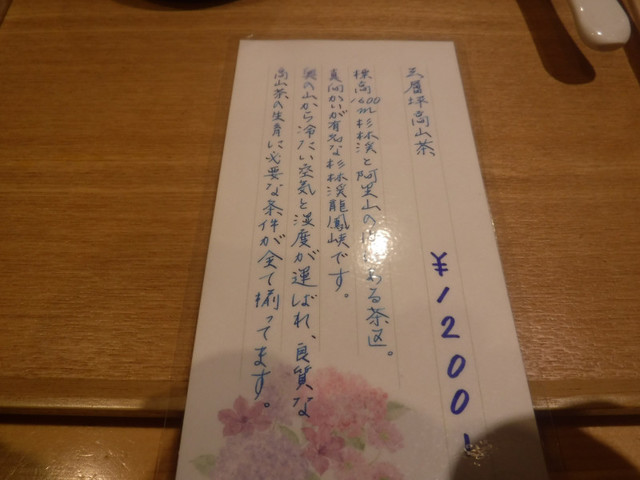 三層坪高山茶
¥1200
標高1600m杉林渓と阿里山の ある茶区。
真向かいが有名な杉林渓龍鳳峡です。
奥の山から冷たい空気と湿度が運ばれ、良質な
高山茶の生育に必要な条件が全て揃ってます。